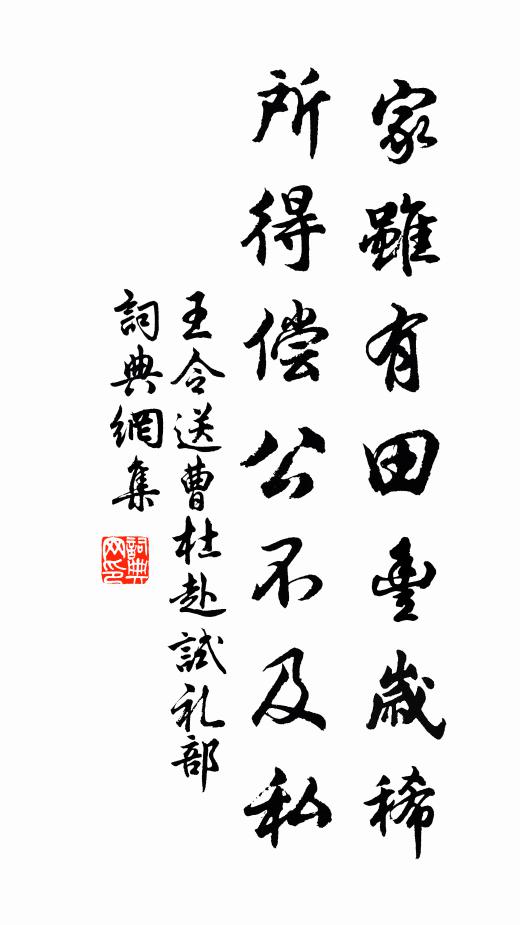 家雖有田豊歲稀
所得偿公不及私
王令送曹杜赴試礼部
詞典網集
詞典网印